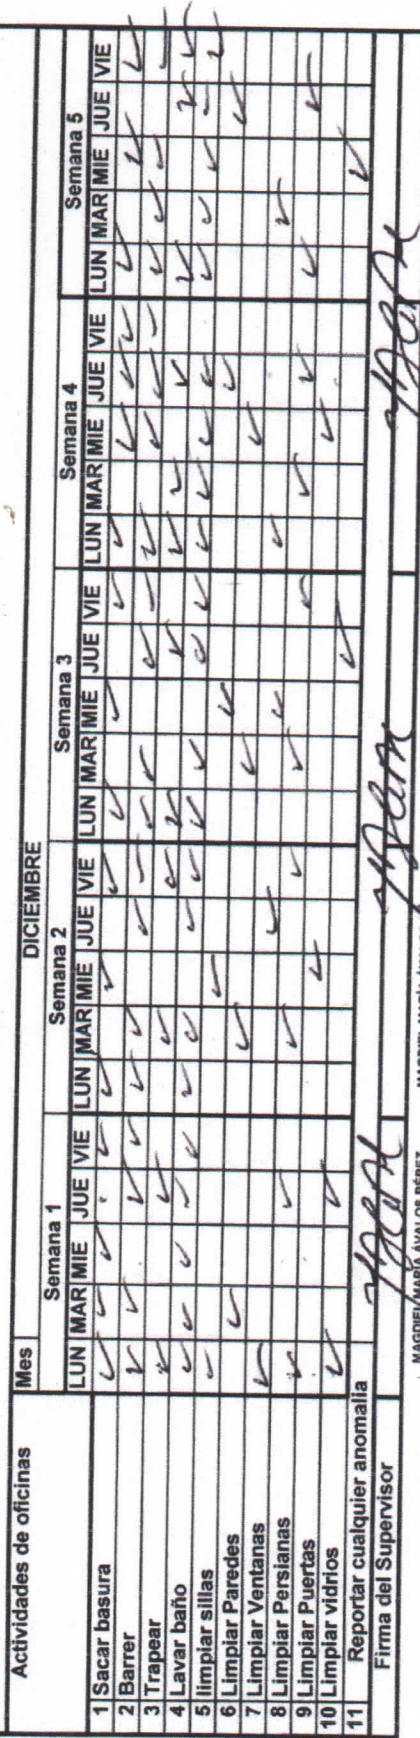 Actividades de oficinas Mes DICIEMBRE
Semana 1 Semana 2 Semana 3 Semana 4 Semana 5
LUN MAR MIE JUE VIE LUN MAR MIE JUE VIE LUN MAR MIE JUE VIE LUN MAR MIE JUE VIE LUN MAR MIE JUE VIE
1 Sacar basura
2 Barrer
3 Trapear
4 Lavar baño
5 limpiar sillas
6 Limpiar Paredes
7 Limpiar Ventanas
8 Limpiar Persianas
9 Limpiar Puertas
10 Limpiar vidrios
11 Reportar cualquier anomalia
Firma del Supervisor
MARÍA ÁVALOS PÉREZ